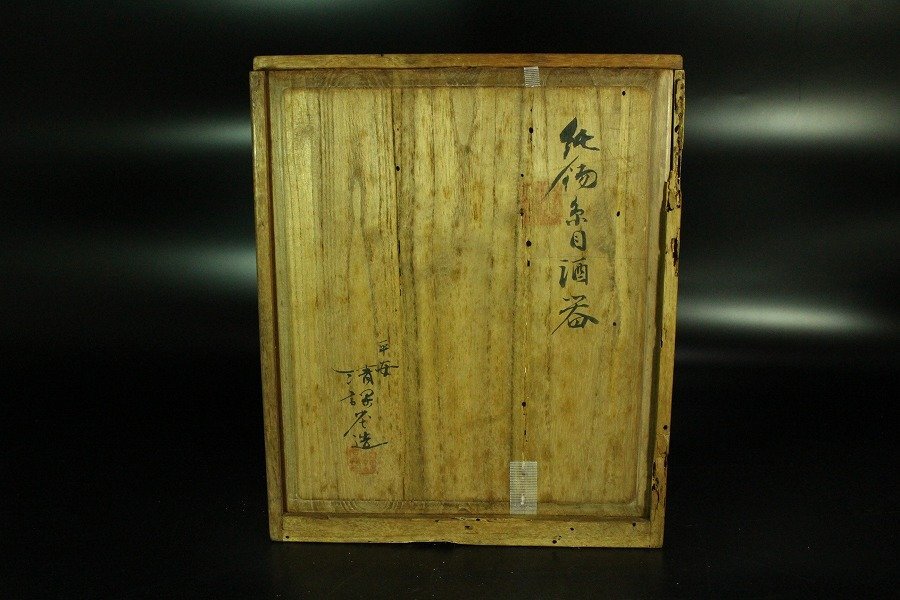 純錫糸目酒器
平安
清課堂造